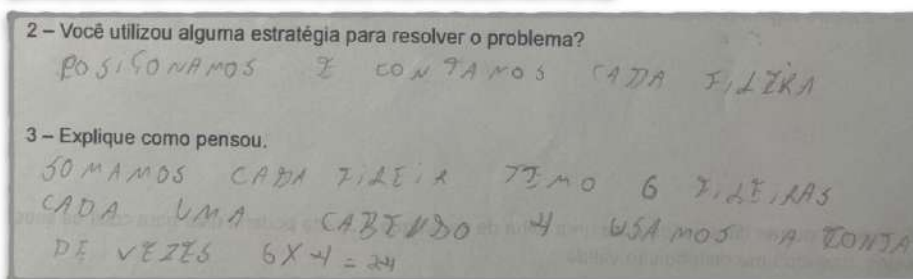 2 – Você utilizou alguma estratégia para resolver o problema?
POSIÇONAMOS E CONTAMOS CADA FILEIRA
3 – Explique como pensou.
SOMAMOS CADA FILEIR TEMO 6 FILEIRAS
CADA UMA CABENDO 4 USAMOS A CONTA
DE VEZES 6X4=24